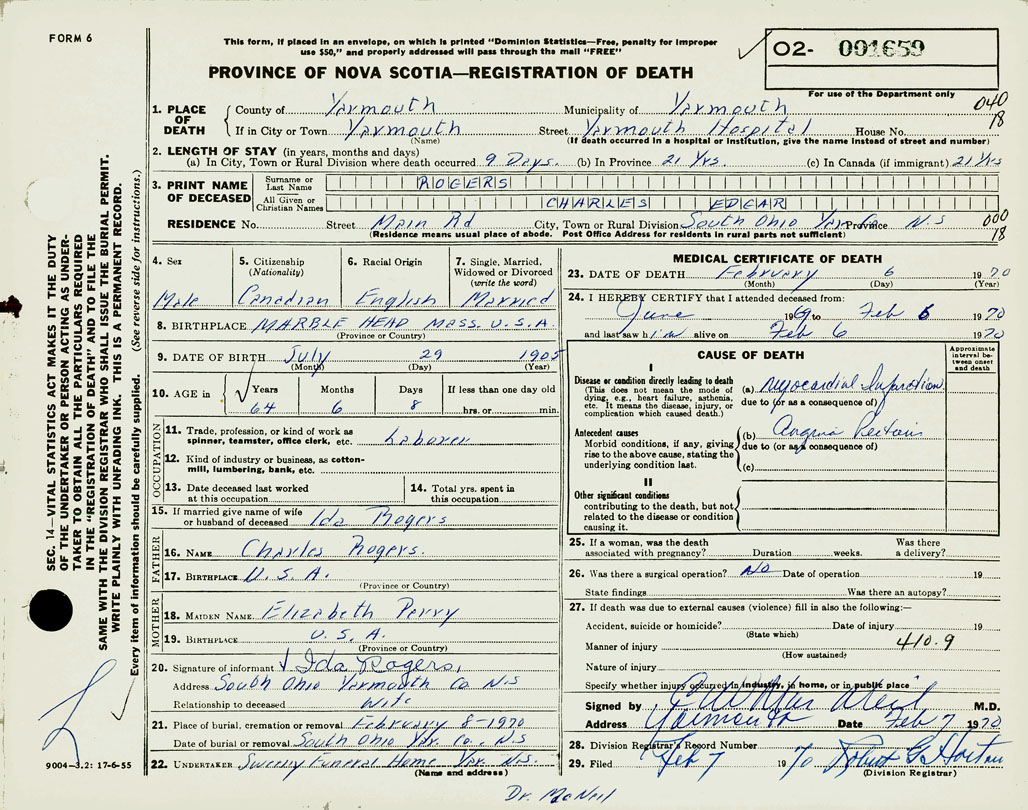 FORM 6
This form, if placed in an envelope, on which is printed "Dominion Statistics—Free, penalty for improper
use $50," and properly addressed will pass through the mail "FREE"
PROVINCE OF NOVA SCOTIA—REGISTRATION OF DEATH
02- 001659
For use of the Department only
040
18
1. PLACE OF DEATH
County of Yarmouth Municipality of Yarmouth
If in City or Town Yarmouth Street Yarmouth Hospital House No.
(Name) (If death occurred in a hospital or institution, give the name instead of street and number)
2. LENGTH OF STAY (in years, months and days)
(a) In City, Town or Rural Division where death occurred 9 Days. (b) In Province 21 Yrs. (c) In Canada (if immigrant) 21 Yrs
3. PRINT NAME OF DECEASED
Surname or Last Name ROGERS
All Given or Christian Names CHARLES EDGAR
RESIDENCE No. Street Main Rd City, Town or Rural Division South Ohio Yar. Co. Province N.S
(Residence means usual place of abode. Post Office Address for residents in rural parts not sufficient)
000
18
4. Sex Male
5. Citizenship (Nationality) Canadian
6. Racial Origin English
7. Single, Married, Widowed or Divorced (write the word) Married
8. BIRTHPLACE MARBLE HEAD MASS. U.S.A.
(Province or Country)
9. DATE OF BIRTH July 29 1905
(Month) (Day) (Year)
10. AGE in Years Months Days If less than one day old
64 6 8 hrs. or min.
OCCUPATION
11. Trade, profession, or kind of work as spinner, teamster, office clerk, etc. Laborer
12. Kind of industry or business, as cotton-mill, lumbering, bank, etc.
13. Date deceased last worked at this occupation
14. Total yrs. spent in this occupation
15. If married give name of wife or husband of deceased Ida Rogers
FATHER
16. NAME Charles Rogers.
17. BIRTHPLACE U.S.A.
(Province or Country)
MOTHER
18. MAIDEN NAME Elizabeth Perry
19. BIRTHPLACE U.S.A.
(Province or Country)
20. Signature of informant Ida Rogers,
Address South Ohio Yarmouth Co N.S
Relationship to deceased Wife
21. Place of burial, cremation or removal February 8-1970
Date of burial or removal South Ohio Yar. Co., N.S
22. UNDERTAKER Sweeny Funeral Home Yar. N.S.
(Name and address)
MEDICAL CERTIFICATE OF DEATH
23. DATE OF DEATH February 6 1970
(Month) (Day) (Year)
24. I HEREBY CERTIFY that I attended deceased from:
June 1969 to Feb 6 1970
and last saw him alive on Feb 6 1970
CAUSE OF DEATH
Approximate interval between onset and death
I
Disease or condition directly leading to death
(This does not mean the mode of dying, e.g., heart failure, asthenia, etc. It means the disease, injury, or complication which caused death.)
(a) Myocardial Infarction
due to (or as a consequence of)
Antecedent causes
Morbid conditions, if any, giving rise to the above cause, stating the underlying condition last.
(b) Angina Pectoris
due to (or as a consequence of)
(c)
II
Other significant conditions
contributing to the death, but not related to the disease or condition causing it.
25. If a woman, was the death associated with pregnancy? Duration weeks. Was there a delivery?
26. Was there a surgical operation? No Date of operation 19
State findings Was there an autopsy?
27. If death was due to external causes (violence) fill in also the following:—
Accident, suicide or homicide? Date of injury 19
(State which)
Manner of injury 410.9
(How sustained)
Nature of injury
Specify whether injury occurred in industry, in home, or in public place
Signed by M.D.
Address Yarmouth Date Feb 7 1970
28. Division Registrar's Record Number
29. Filed Feb 7 1970 Robert G Horton
(Division Registrar)
Dr. McNeil
SEC. 14—VITAL STATISTICS ACT MAKES IT THE DUTY
OF THE UNDERTAKER OR PERSON ACTING AS UNDER-
TAKER TO OBTAIN ALL THE PARTICULARS REQUIRED
IN THE "REGISTRATION OF DEATH" AND TO FILE THE
SAME WITH THE DIVISION REGISTRAR WHO SHALL ISSUE THE BURIAL PERMIT.
WRITE PLAINLY WITH UNFADING INK. THIS IS A PERMANENT RECORD.
Every item of information should be carefully supplied. (See reverse side for instructions.)
9004-3.2: 17-6-55